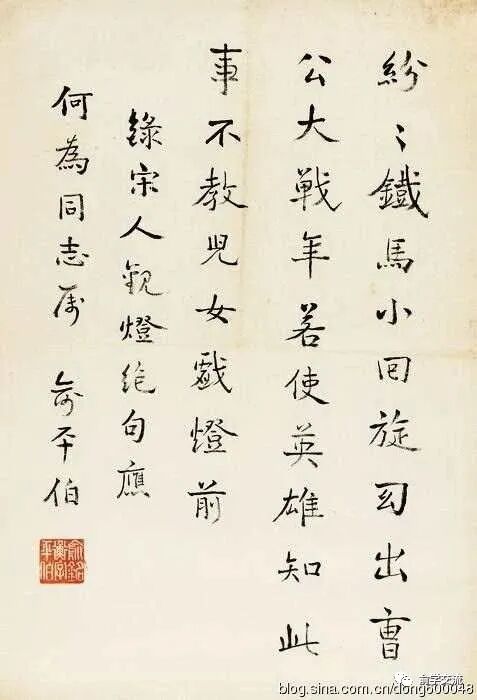 紛〻鐵馬小回旋幻出曹
公大戦年若使英雄知此
事不教兒女戲燈前
錄宋人觀燈絕句應
何為同志屬 俞平伯
俞銘衡字平伯